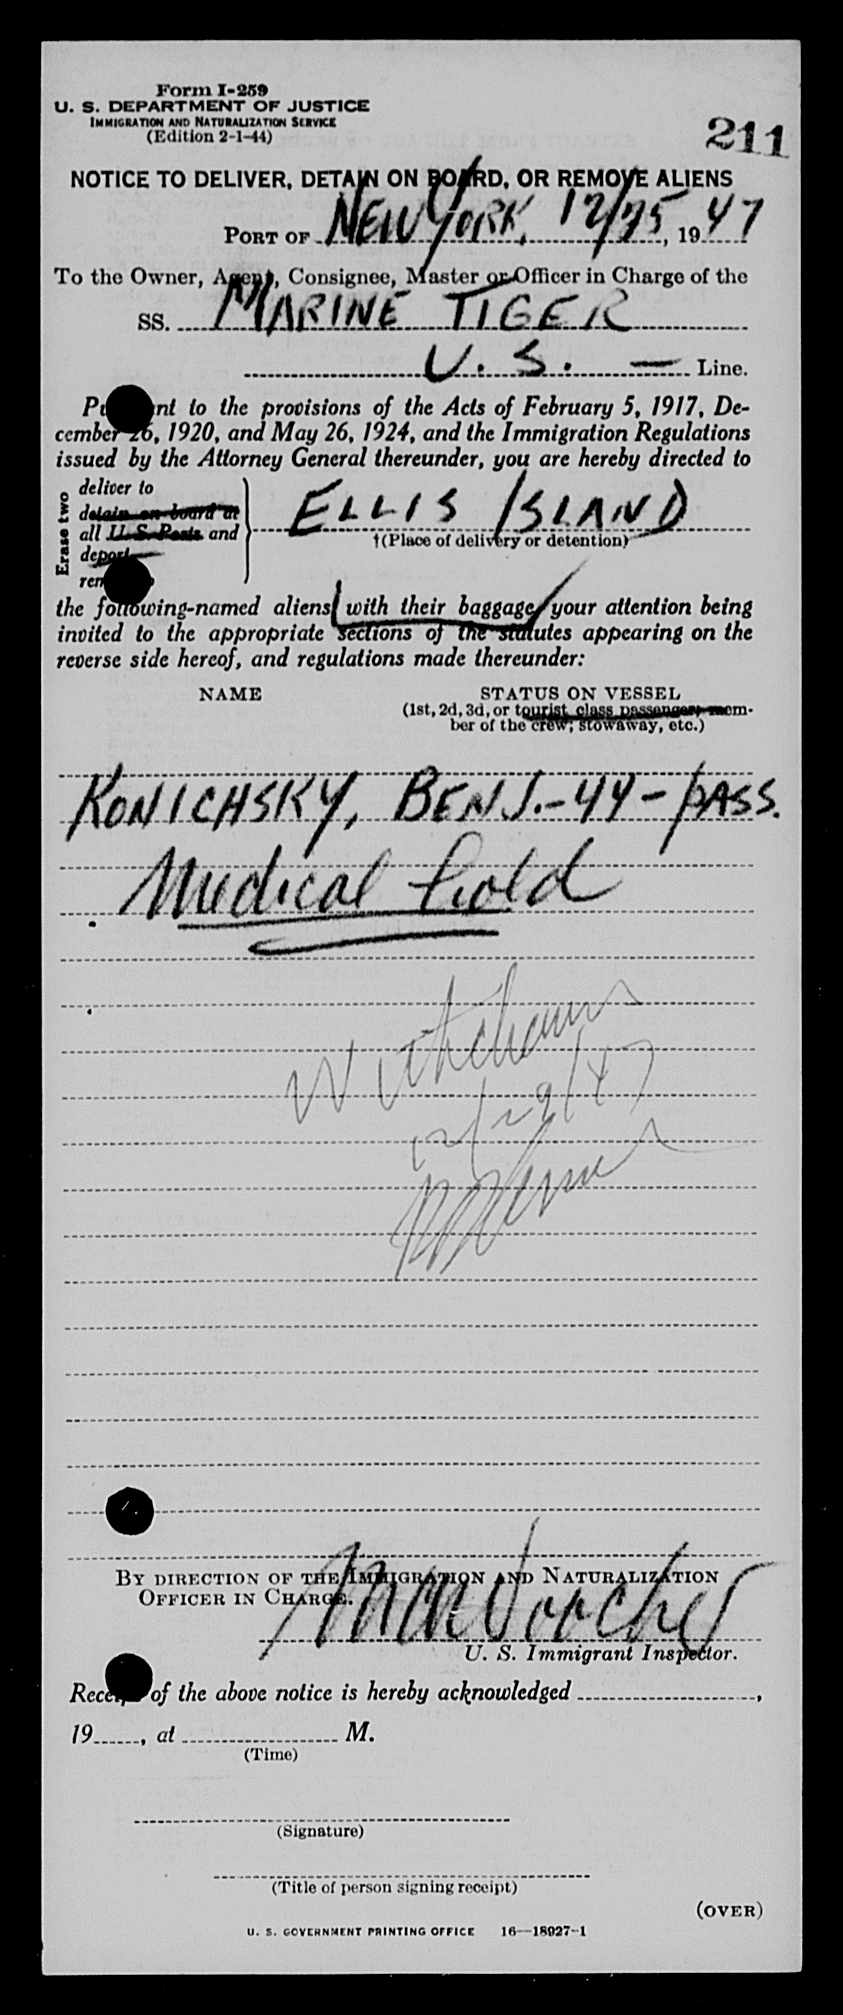 Form I-259
U. S. DEPARTMENT OF JUSTICE
IMMIGRATION AND NATURALIZATION SERVICE
(Edition 2-1-44)
211
NOTICE TO DELIVER, DETAIN ON BOARD, OR REMOVE ALIENS
PORT OF NEW YORK, 12/25, 1947
To the Owner, Agent, Consignee, Master or Officer in Charge of the
SS. MARINE TIGER
U.S. — Line.
nt to the provisions of the Acts of February 5, 1917, De-
cember 26, 1920, and May 26, 1924, and the Immigration Regulations
issued by the Attorney General thereunder, you are hereby directed to
Erase two
deliver to
detain on board at
all U. S. Ports and
deport
ELLIS ISLAND
†(Place of delivery or detention)
the following-named aliens with their baggage your attention being
invited to the appropriate sections of the statutes appearing on the
reverse side hereof, and regulations made thereunder:
NAME STATUS ON VESSEL
(1st, 2d, 3d, or tourist class passenger, mem-
ber of the crew, stowaway, etc.)
KONICHSKY, BENJ.-44-PASS.
Medical hold
12/29/47
BY DIRECTION OF THE IMMIGRATION AND NATURALIZATION
OFFICER IN CHARGE.
U. S. Immigrant Inspector.
Receipt of the above notice is hereby acknowledged ,
19 , at M.
(Time)
(Signature)
(Title of person signing receipt)
(OVER)
U. S. GOVERNMENT PRINTING OFFICE 16—18927-1